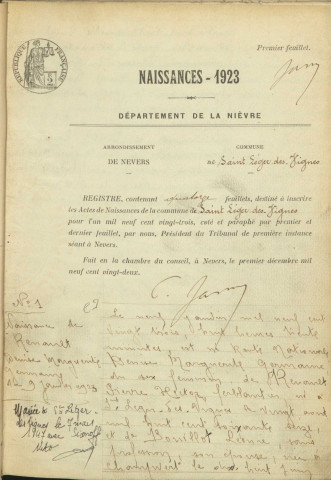 Premier feuillet.
RÉPUBLIQUE FRANÇAISE
NAISSANCES - 1923
DÉPARTEMENT DE LA NIÈVRE
ARRONDISSEMENT
DE NEVERS
COMMUNE
DE Saint Léger des Vignes
REGISTRE, contenant quatorze feuillets, destiné à inscrire
les Actes de Naissances de la commune de Saint Léger des Vignes
pour l'an mil neuf cent vingt-trois, coté et paraphé par premier et
dernier feuillet, par nous, Président du Tribunal de première instance
séant à Nevers.
Fait en la chambre du conseil, à Nevers, le premier décembre mil
neuf cent vingt-deux.
N° 1
Naissance de
Renault
Denise Marguerite
Germaine
du 9 janvier 1923
Mariée à St Léger
des Vignes le
1947 avec
Le neuf janvier mil neuf cent
vingt trois, huit heures trente
minutes est née Route Nationale
Denise Marguerite Germaine
du sexe féminin, de Renault
Pierre
St Léger des Vignes le vingt août
mil huit cent soixante seize,
et de
profession, son épouse, née à
Champvert le dix huit juin